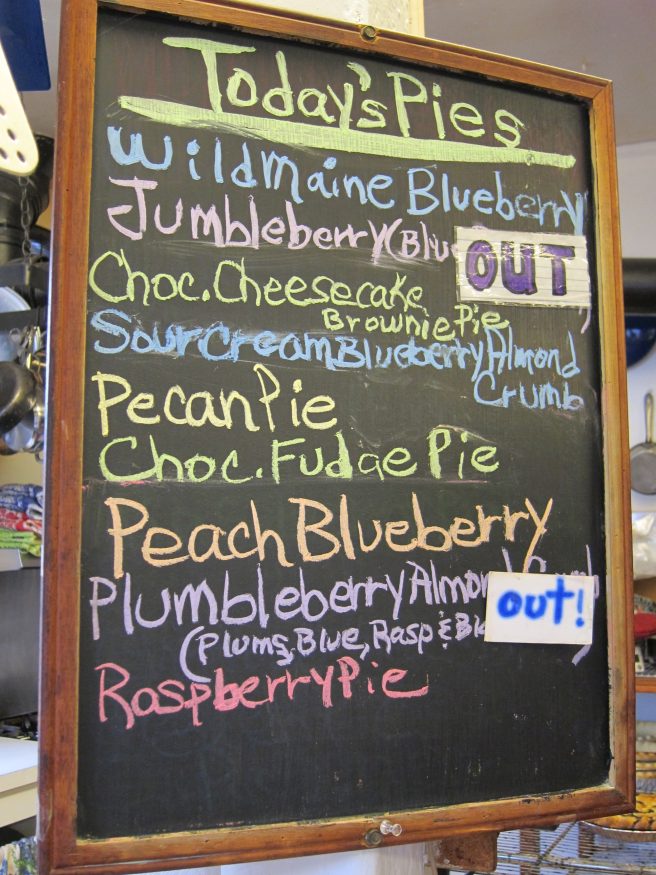 Today's Pies
Wild Maine Blueberry
Jumbleberry (Blue
OUT
Choc. Cheesecake
Brownie Pie
Sour Cream Blueberry Almond
Crumb
Pecan Pie
Choc. Fudge Pie
Peach Blueberry
Plumbleberry Almond
out!
(Plums, Blue, Rasp &
Raspberry Pie